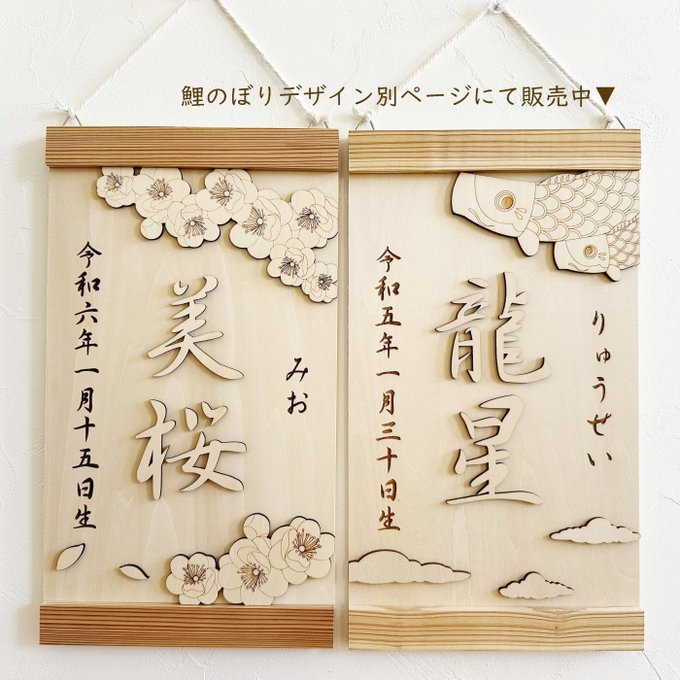 鯉のぼりデザイン別ページにて販売中▼
みお
美桜
令和六年一月十五日生
りゅうせい
龍星
令和五年一月三十日生